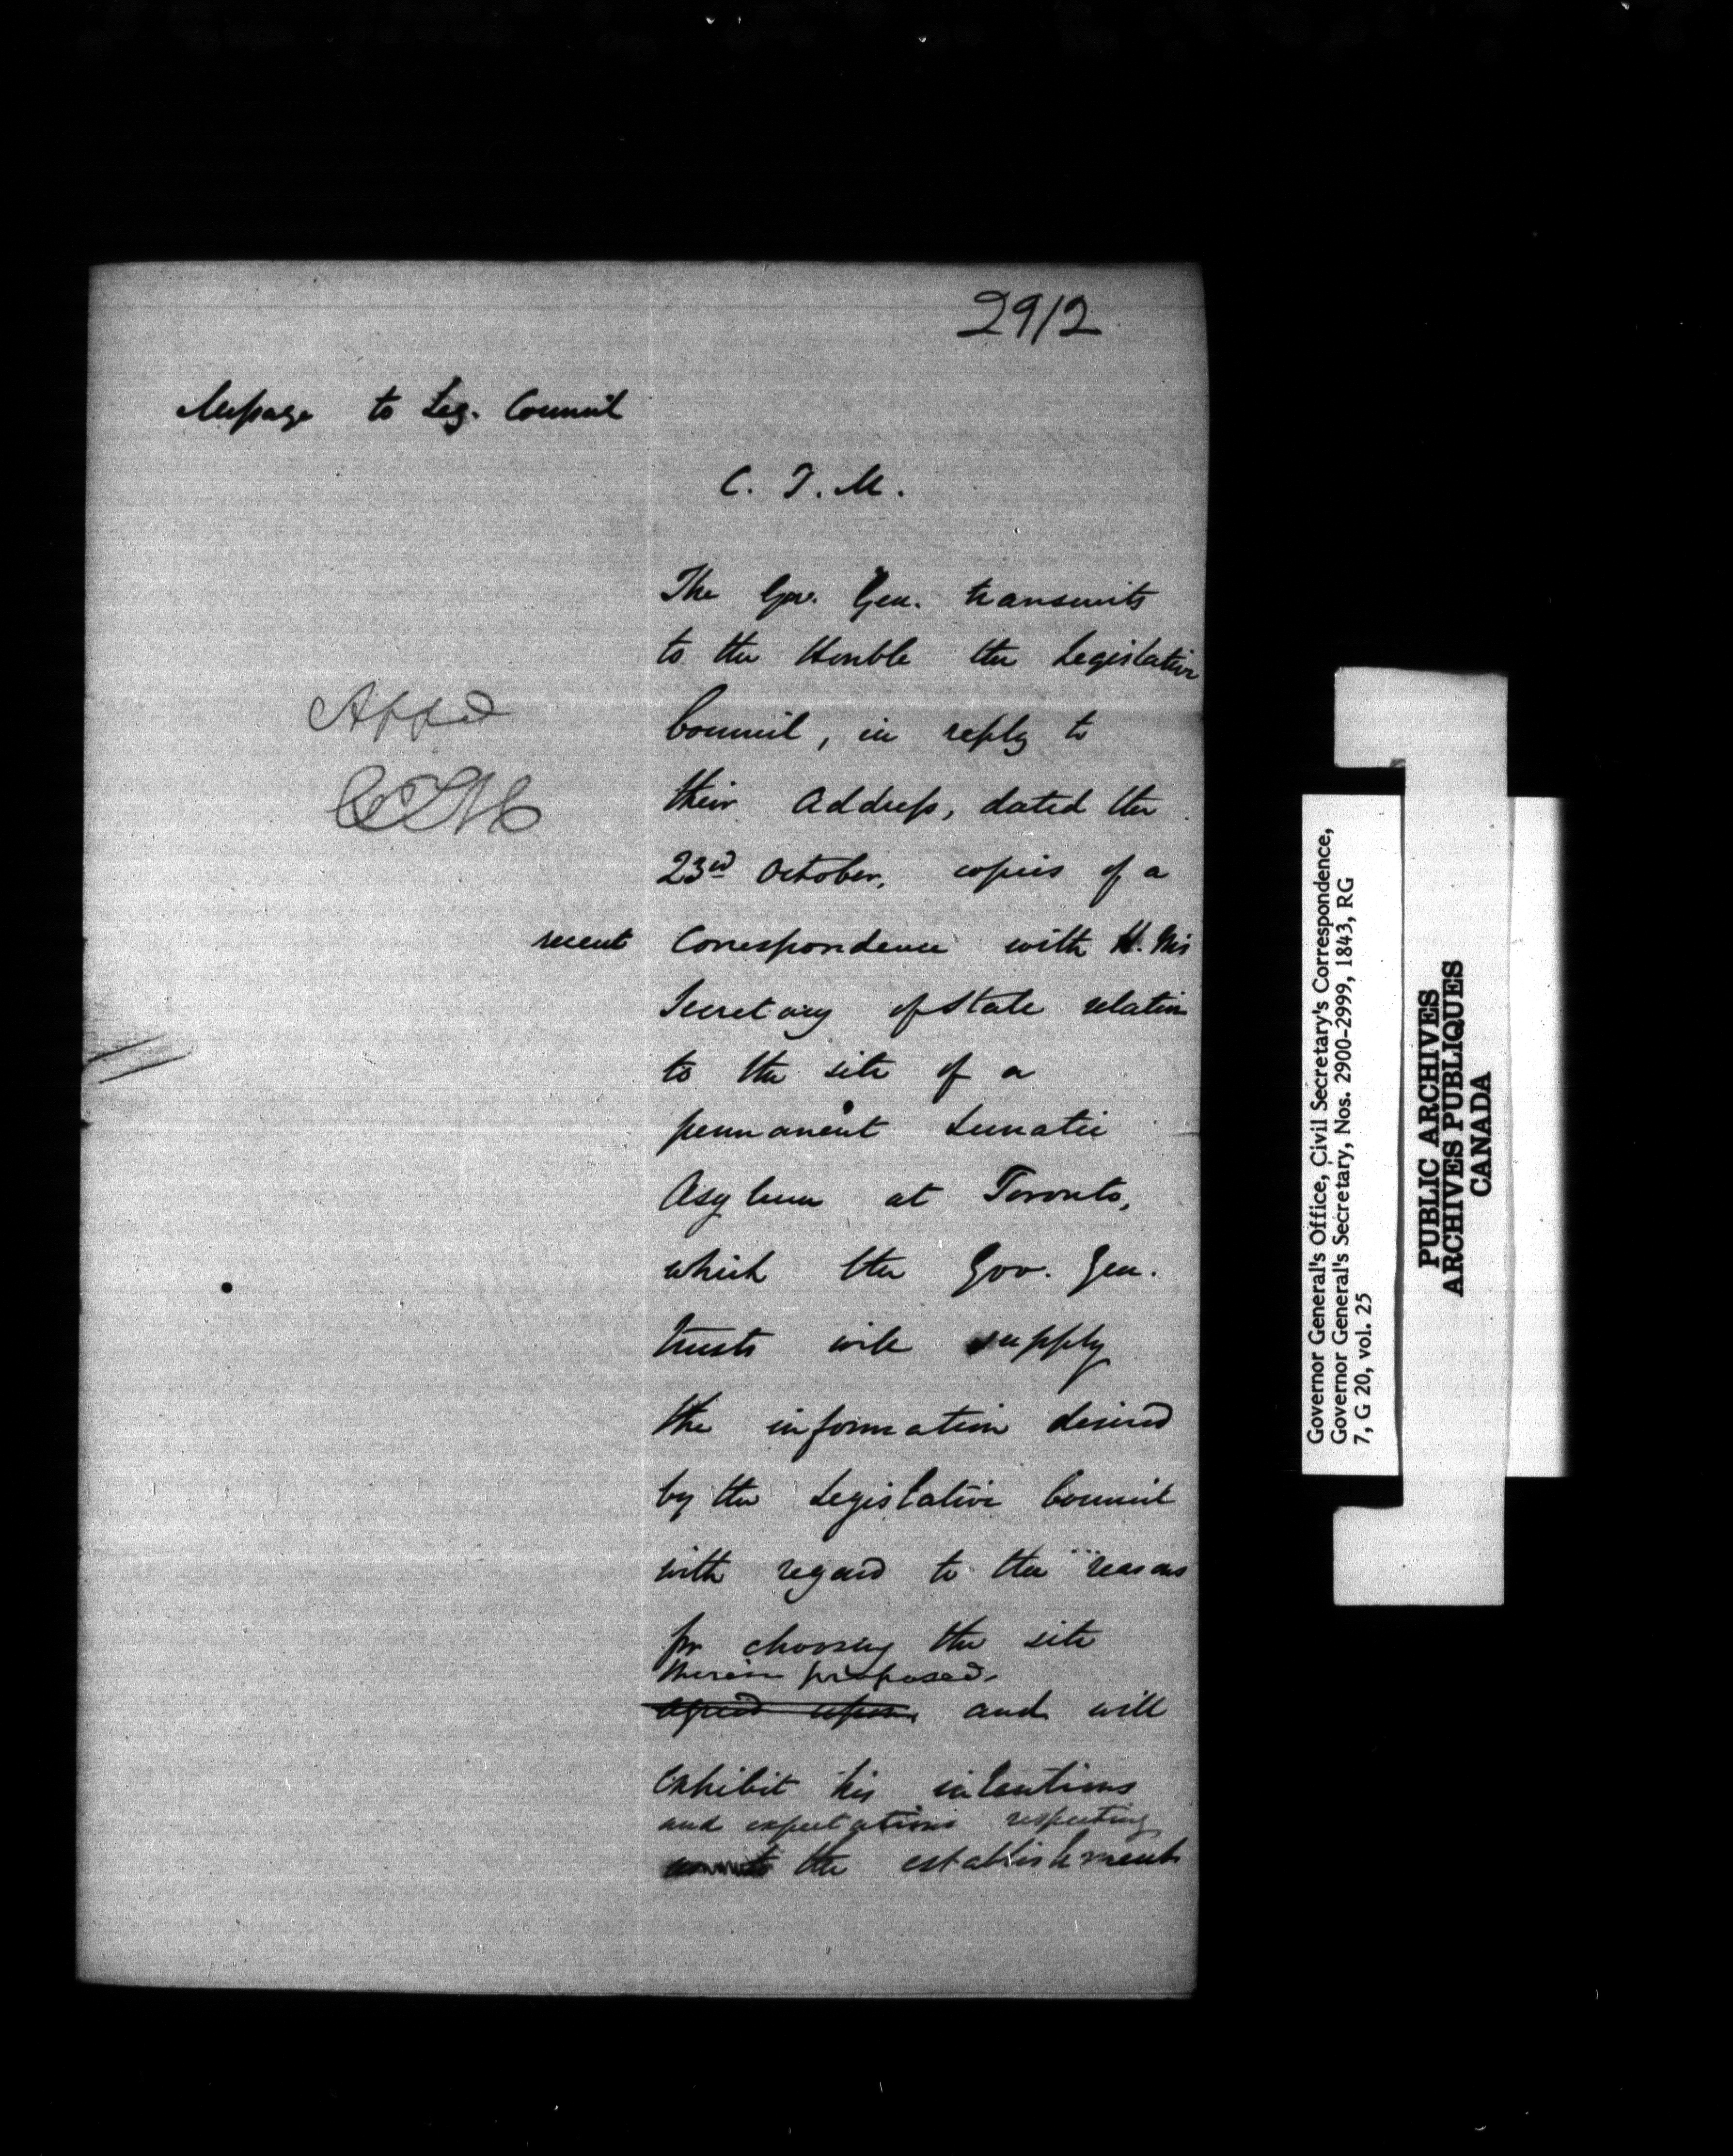 2912
Message to Leg. Council
C. T. M.
The Gov. Gen. transmits
to the Honble the Legislative
Council, in reply to
their Address, dated the
23rd October, copies of a
recent Correspondence with H. M's
Secretary of State relative
to the site of a
permanent Lunatic
Asylum at Toronto,
which the Gov. Gen.
trusts will supply
the information desired
by the Legislative Council
with regard to the reasons
for choosing the site
therein proposed.
agreed upon. and will
exhibit his intentions
and expectations respecting
the establishment
Appd
CTM
Governor General's Office, Civil Secretary's Correspondence,
Governor General's Secretary, Nos. 2900-2999, 1843, RG
7, G 20, vol. 25
PUBLIC ARCHIVES
ARCHIVES PUBLIQUES
CANADA